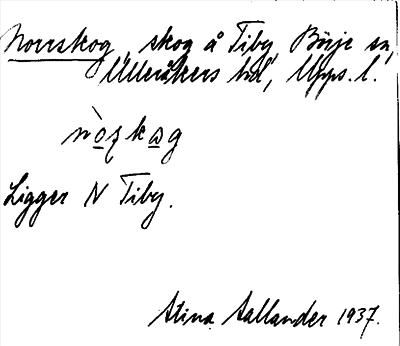 Norrskog, skog å Tiby, Börje sn,
Ulleråkers hd, Upps. l.
Ligger N Tiby.
Stina Aallander 1937.